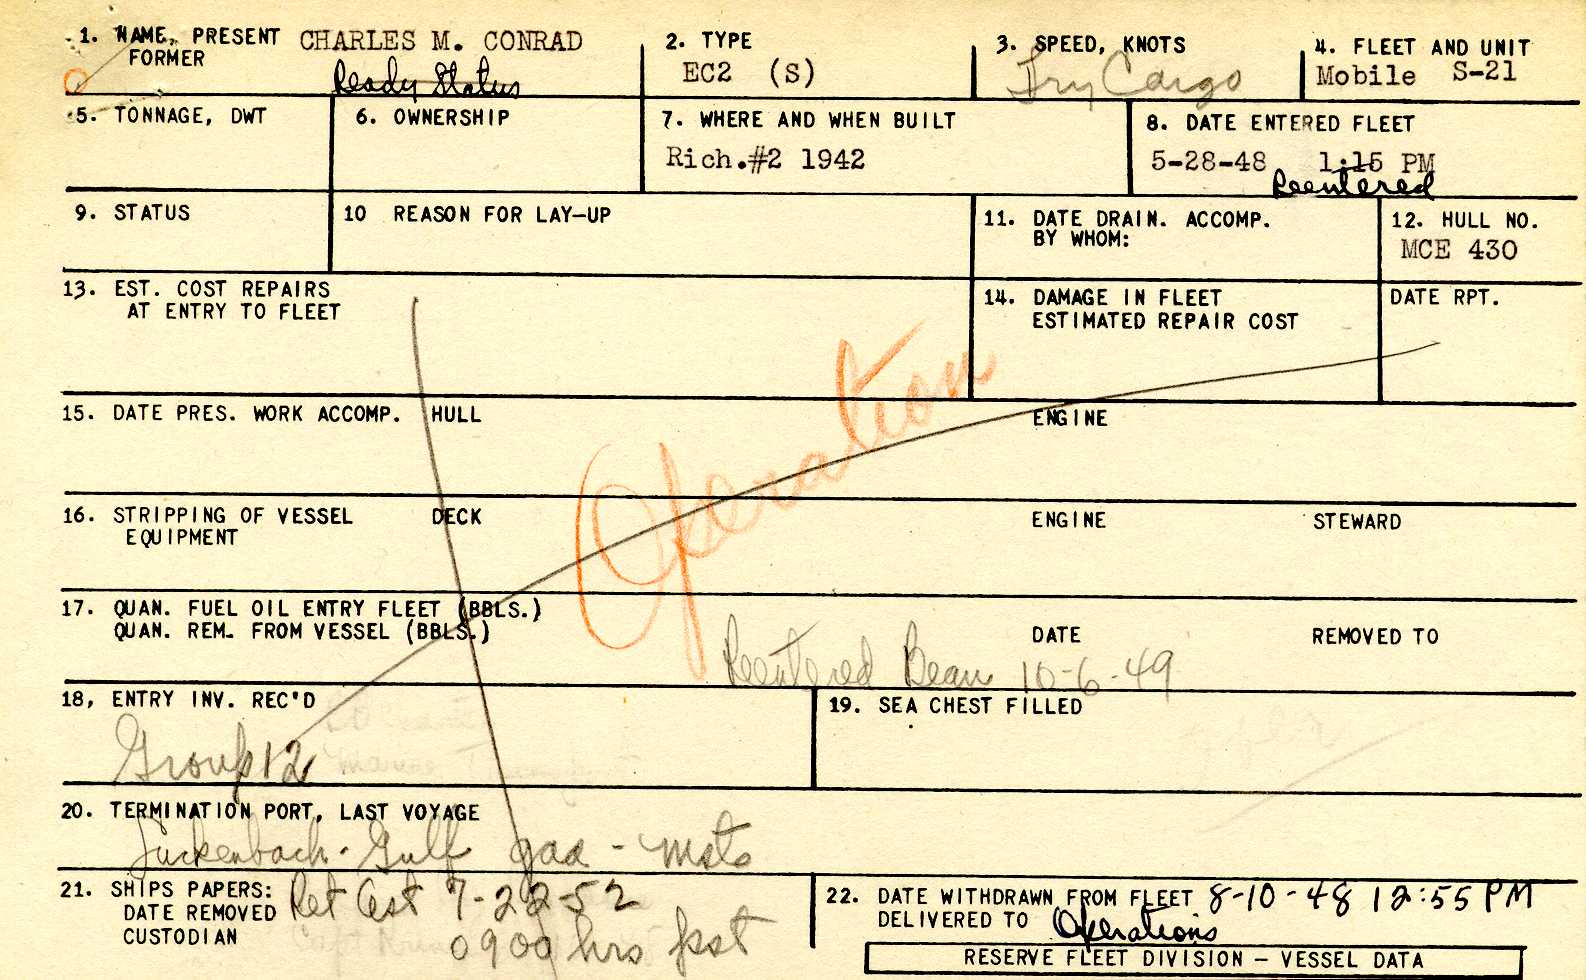 1. NAME, PRESENT CHARLES M. CONRAD
FORMER
Ready Status
2. TYPE
EC2 (S)
3. SPEED, KNOTS
Dry Cargo
4. FLEET AND UNIT
Mobile S-21
5. TONNAGE, DWT
6. OWNERSHIP
7. WHERE AND WHEN BUILT
Rich.#2 1942
8. DATE ENTERED FLEET
5-28-48 1:15 PM
Reentered
9. STATUS
10 REASON FOR LAY-UP
11. DATE DRAIN. ACCOMP.
BY WHOM:
12. HULL NO.
MCE 430
13. EST. COST REPAIRS
AT ENTRY TO FLEET
14. DAMAGE IN FLEET
ESTIMATED REPAIR COST
DATE RPT.
Operation
15. DATE PRES. WORK ACCOMP. HULL ENGINE
16. STRIPPING OF VESSEL DECK ENGINE STEWARD
EQUIPMENT
17. QUAN. FUEL OIL ENTRY FLEET (BBLS.)
QUAN. REM. FROM VESSEL (BBLS.) DATE REMOVED TO
Reentered Beau 10-6-49
18, ENTRY INV. REC'D
Group 12
19. SEA CHEST FILLED
20. TERMINATION PORT, LAST VOYAGE
Luckenbach-Gulf gaa - msts
21. SHIPS PAPERS: Ret Ast 7-22-52
DATE REMOVED
CUSTODIAN 0900 hrs pst
22. DATE WITHDRAWN FROM FLEET 8-10-48 12:55 PM
DELIVERED TO Operations
RESERVE FLEET DIVISION - VESSEL DATA